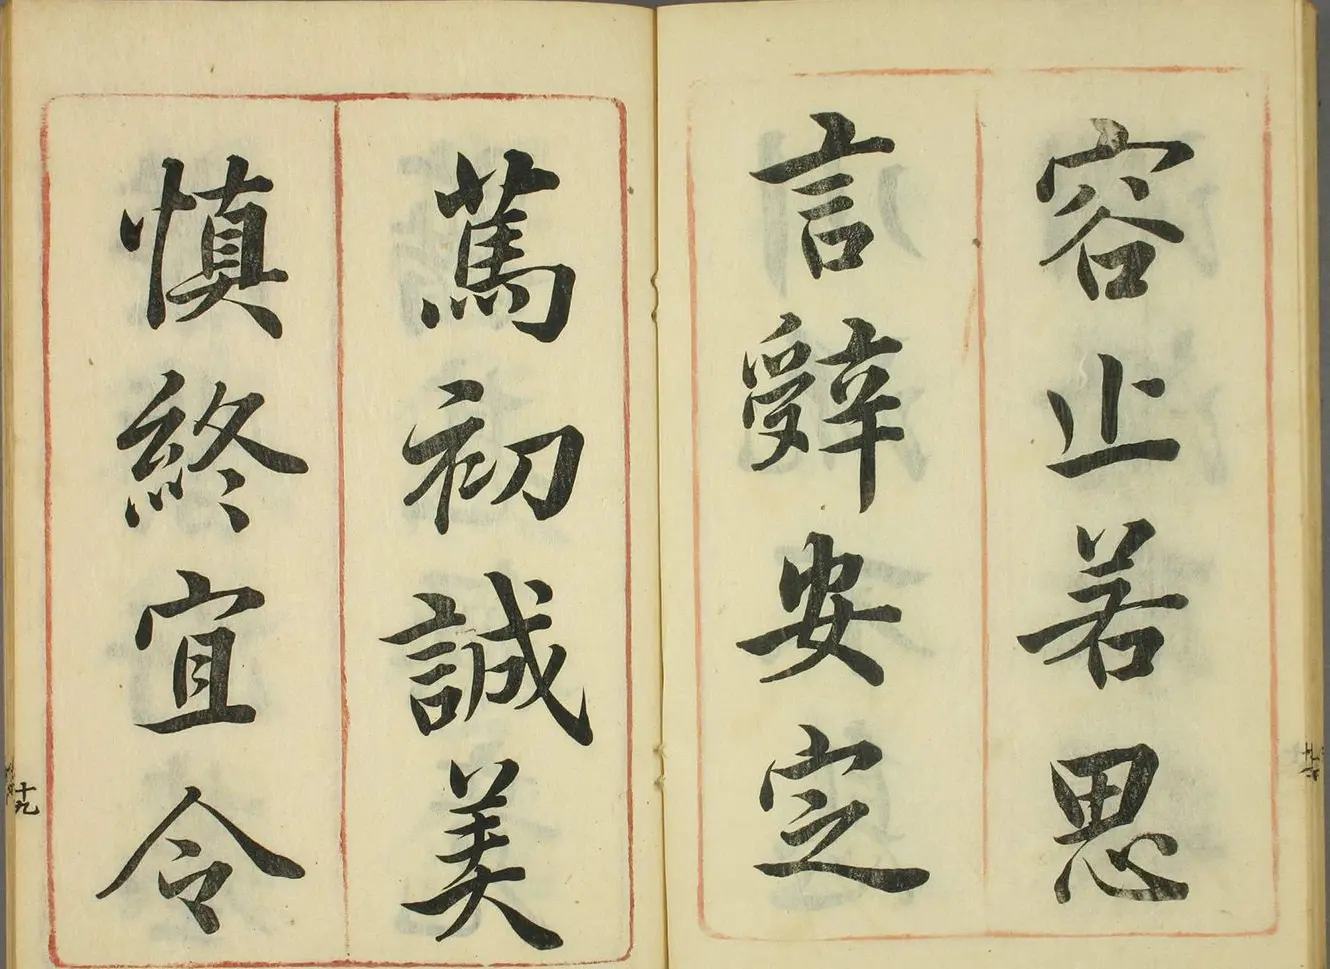 容止若思
言辭安定
篤初誠美
慎終宜令
十九